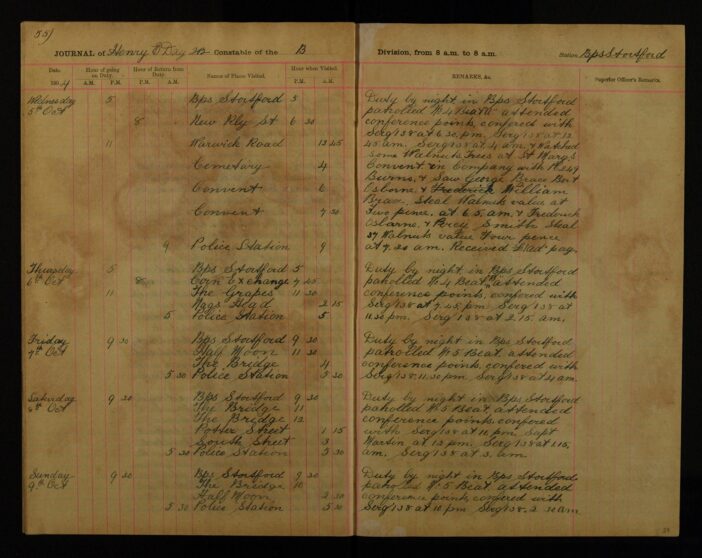 55/
JOURNAL of Henry O'Day 213 Constable of the B
Division, from 8 a.m. to 8 a.m. Station, Bps Stortford
Date. 190 4
Hour of going on Duty. A.M. P.M.
Hour of Return from Duty. P.M. A.M.
Names of Places Visited.
Hour when Visited. P.M. A.M.
REMARKS, &c.
Superior Officer's Remarks.
Wednesday 5 Bps Stortford 5
5th Oct
8 New Rly St 6 30
11 Warwick Road 12 45
Cemetery 4
Convent 6
Convent 7 20
9 Police Station 9
Duty by night in Bps Stortford
patrolled No 4 Beat attended
conference points, confered with
Serg 138 at 6.30 pm. Serg 138 at 12
45 am. Serg 138 at 4 am. & Watched
some Walnut Trees at St Marys
Convent in Company with PC 249
Burns, & Saw George Brace Bert
Osborne, & Frederick William
Brace, Steal Walnuts value at
Two pence. at 6.5. am. & Frederick
Osborne. & Percy Smith Steal
37 Walnuts value Four pence
at 7.20 am. Received pay.
Thursday 5 Bps Stortford 5
6th Oct 8 Corn Exchange 7 45
11 The Grapes 11 30
Nags Head 2 15
5 Police Station 5
Duty by night in Bps Stortford
patrolled No 4 Beat attended
conference points, confered with
Serg 138 at 7.45 pm. Serg 138 at
11.30 pm. Serg 138 at 2.15 am.
Friday 9 30 Bps Stortford 9 30
7th Oct Half Moon 11 30
The Bridge 4
5 30 Police Station 5 30
Duty by night in Bps Stortford
patrolled No 5 Beat attended
conference points, confered with
Serg 138 11.30 pm. Serg 138 at 4 am.
Saturday 9 30 Bps Stortford 9 30
8th Oct The Bridge 11
The Bridge 12
Potter Street 1 15
South Street 3
5 30 Police Station 5 30
Duty by night in Bps Stortford
patrolled No 5 Beat, attended
conference points, confered
with Serg 138 at 11 pm. Supt
Martin at 12 pm. Serg 138 at 1.15.
am. Serg 138 at 3. am.
Sunday 9 30 Bps Stortford 9 30
9th Oct The Bridge 10
Half Moon 2 30
5 30 Police Station 5 30
Duty by night in Bps Stortford
patrolled No 5 Beat attended
conference points, confered with
Serg 138 at 10 pm Serg 138. 2.30 am